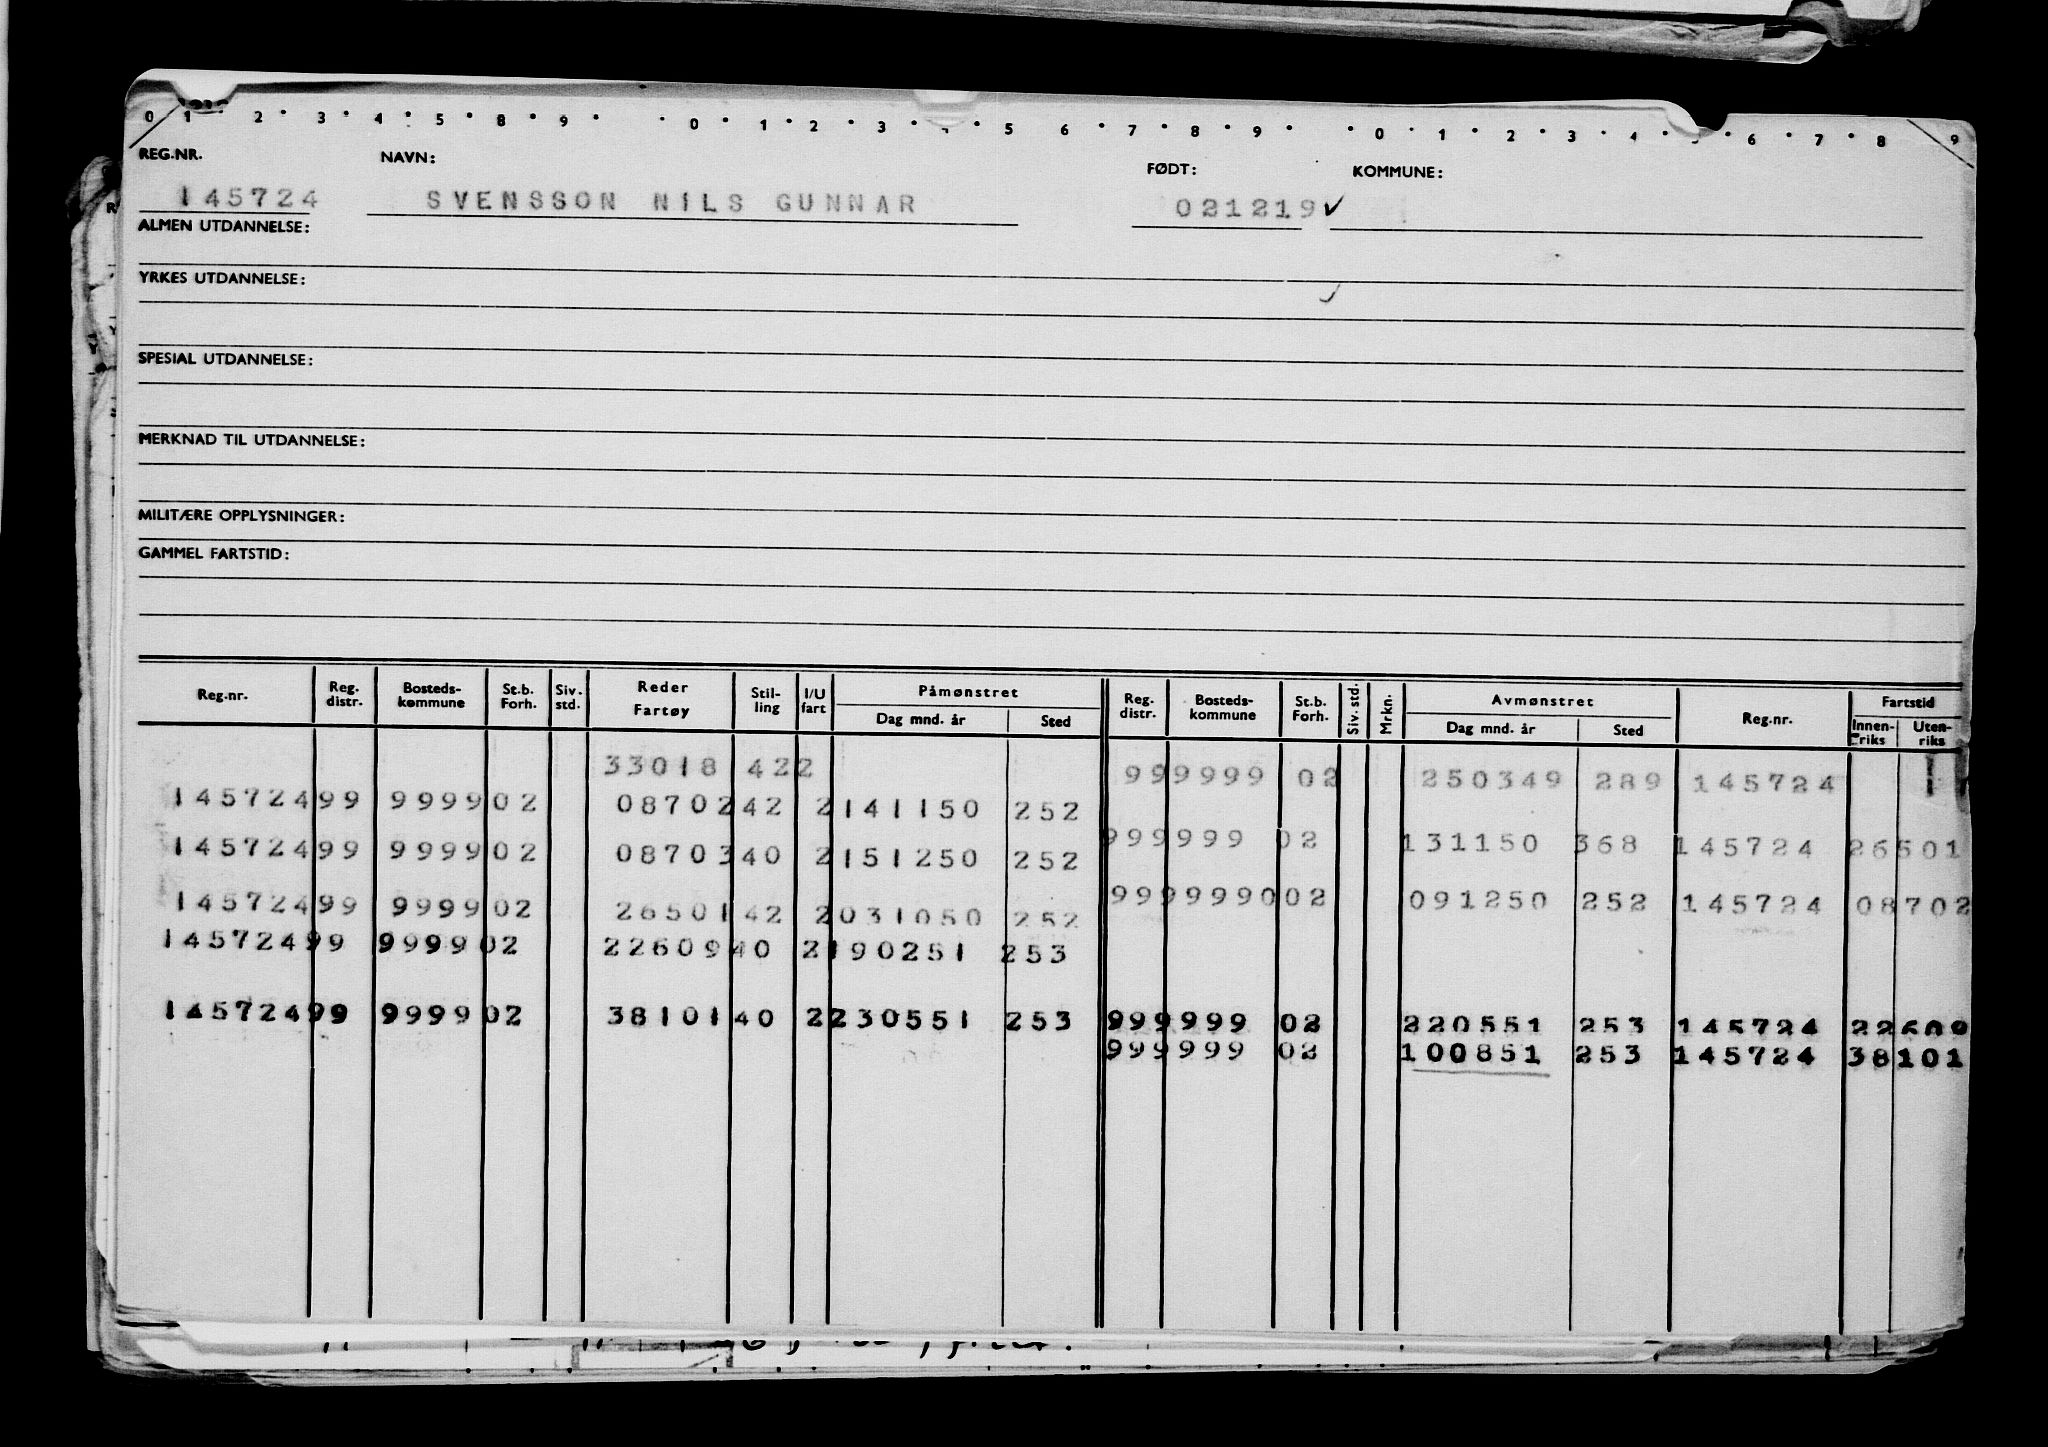 0 1 2 3 4 5 8 9 0 1 2 3 5 6 7 8 9 0 1 2 3 4 5 6 7 8 9
REG.NR. NAVN: FØDT: KOMMUNE:
145724 SVENSSON NILS GUNNAR 021219✓
ALMEN UTDANNELSE:
YRKES UTDANNELSE:
SPESIAL UTDANNELSE:
MERKNAD TIL UTDANNELSE:
MILITÆRE OPPLYSNINGER:
GAMMEL FARTSTID:
Reg.nr. Reg. distr. Bosteds-kommune St.b. Forh. Siv. std. Reder Fartøy Stil-ling I/U fart Påmønstret Dag mnd. år Sted Reg. distr. Bosteds-kommune St.b. Forh. Siv. std. Mrkn. Avmønstret Dag mnd. år Sted Reg.nr. Fartstid Innen-riks Uten-riks
33018 42 2 99 9999 02 250349 289 145724
145724 99 9999 02 08702 42 2 141150 252
99 9999 02 131150 368 145724 26501
145724 99 9999 02 08703 40 2 151250 252
99 9999 002 091250 252 145724 08702
145724 99 9999 02 26501 42 2 031050 252
145724 99 9999 02 22609 40 2 190251 253
145724 99 9999 02 38101 40 2 230551 253 99 9999 02 220551 253 145724 22609
99 9999 02 100851 253 145724 38101